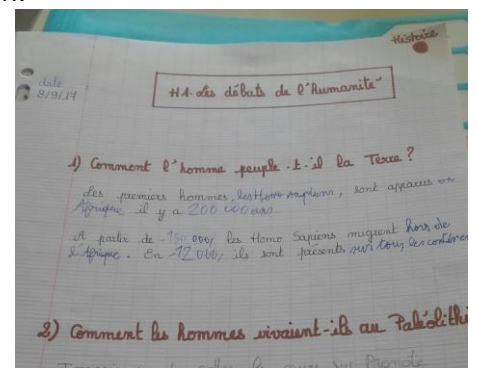 Histoire
date
8/9/17
H1. Les débuts de l'Humanité
1) Comment l'homme peuple-t-il la Terre ?
Les premiers hommes, les Homo sapiens, sont apparus en
Afrique il y a 200 000 ans.
A partir de -150 000, les Homo Sapiens migrent hors de
l'Afrique. En -12 000, ils sont présents sur tous les continen
2) Comment les hommes vivaient-ils au Paléolithi